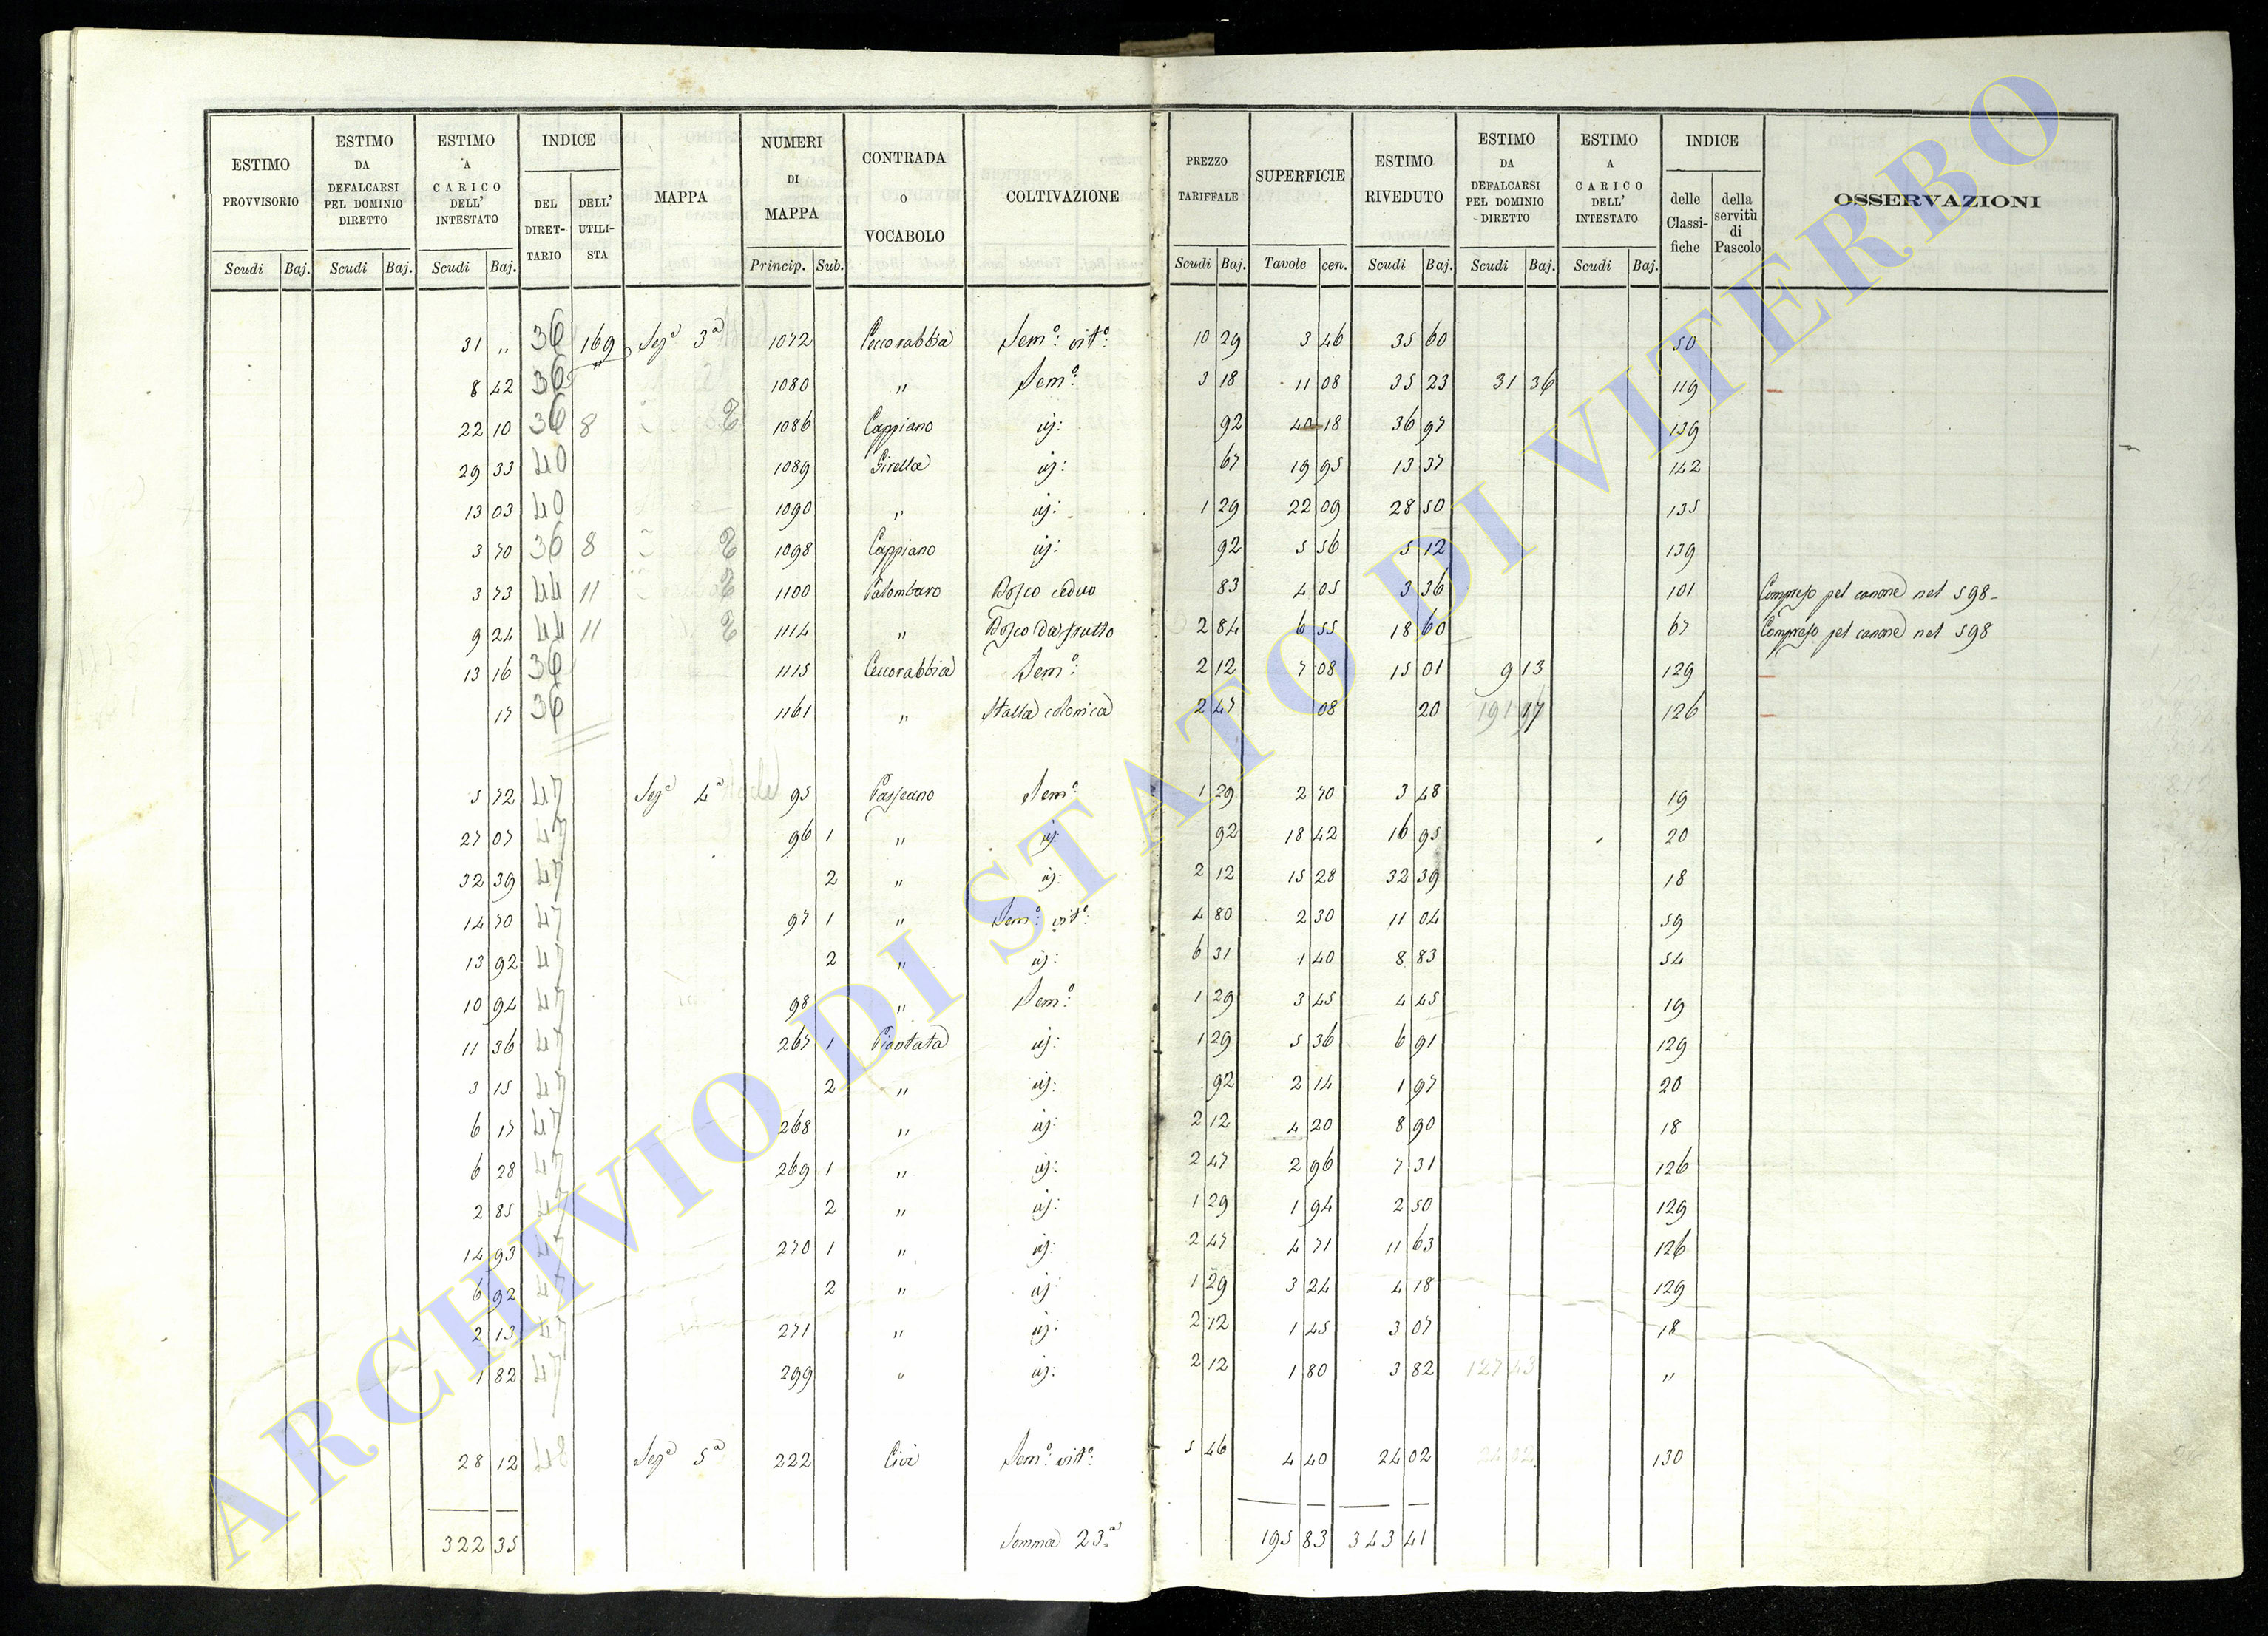 ESTIMO PROVVISORIO | ESTIMO DA DEFALCARSI PEL DOMINIO DIRETTO | ESTIMO A CARICO DELL' INTESTATO | INDICE DEL DIRETTARIO | DELL' UTILISTA | MAPPA | NUMERI DI MAPPA | CONTRADA O VOCABOLO | COLTIVAZIONE | PREZZO TARIFFALE | SUPERFICIE | ESTIMO RIVEDUTO | ESTIMO DA DEFALCARSI PEL DOMINIO DIRETTO | ESTIMO A CARICO DELL' INTESTATO | INDICE delle Classifiche | della servitù di Pascolo | OSSERVAZIONI
Scudi | Baj. | Scudi | Baj. | Scudi | Baj. | Princip. | Sub. | Scudi | Baj. | Tavole | cen. | Scudi | Baj. | Scudi | Baj. | Scudi | Baj.
31 | " | 36 | 169 | Sezᵃ 3ᵃ | 1072 | Ceccorabbia | Semº: vitº: | 10 | 29 | 3 | 46 | 35 | 60 | 50
8 | 42 | 36 | 1080 | " | Semº: | 3 | 18 | 11 | 08 | 35 | 23 | 31 | 36 | 119
22 | 10 | 36 | 8 | 1086 | Cappiano | id: | 92 | 40 | 18 | 36 | 97 | 139
29 | 33 | 40 | 1089 | Girella | id: | 67 | 19 | 95 | 13 | 37 | 142
13 | 03 | 40 | 1090 | " | id: | 1 | 29 | 22 | 09 | 28 | 50 | 135
3 | 70 | 36 | 8 | 1098 | Cappiano | id: | 92 | 5 | 56 | 5 | 12 | 139
3 | 73 | 44 | 11 | 1100 | Palombaro | Bosco ceduo | 83 | 4 | 05 | 3 | 36 | 101 | Compreso pel canone nel 598
9 | 24 | 44 | 11 | 1114 | " | Bosco da frutto | 2 | 84 | 6 | 55 | 18 | 60 | 67 | Compreso pel canone nel 598
13 | 16 | 36 | 1115 | Ceccorabbia | Semº: | 2 | 12 | 7 | 08 | 15 | 01 | 9 | 13 | 129
17 | 36 | 1161 | " | Stalla colonica | 2 | 47 | 08 | 20 | 191 | 17 | 126
5 | 72 | 47 | Sezᵃ 4ᵃ | 95 | Passeano | Semº: | 1 | 29 | 2 | 70 | 3 | 48 | 19
27 | 07 | 47 | 96 | 1 | " | id: | 92 | 18 | 42 | 16 | 95 | 20
32 | 39 | 47 | 2 | " | id: | 2 | 12 | 15 | 28 | 32 | 39 | 18
14 | 70 | 47 | 97 | 1 | " | Semº: vitº: | 4 | 80 | 2 | 30 | 11 | 04 | 59
13 | 92 | 47 | 2 | " | id: | 6 | 31 | 1 | 40 | 8 | 83 | 54
10 | 94 | 47 | 98 | " | Semº: | 1 | 29 | 3 | 45 | 4 | 45 | 19
11 | 36 | 47 | 267 | 1 | Piantata | id: | 1 | 29 | 5 | 36 | 6 | 91 | 129
3 | 15 | 47 | 2 | " | id: | 92 | 2 | 14 | 1 | 97 | 20
6 | 17 | 47 | 268 | " | id: | 2 | 12 | 4 | 20 | 8 | 90 | 18
6 | 28 | 47 | 269 | 1 | " | id: | 2 | 47 | 2 | 96 | 7 | 31 | 126
2 | 85 | 47 | 2 | " | id: | 1 | 29 | 1 | 94 | 2 | 50 | 129
14 | 93 | 47 | 270 | 1 | " | id: | 2 | 47 | 4 | 71 | 11 | 63 | 126
6 | 92 | 47 | 2 | " | id: | 1 | 29 | 3 | 24 | 4 | 18 | 129
2 | 13 | 47 | 271 | " | id: | 2 | 12 | 1 | 45 | 3 | 07 | 18
1 | 82 | 47 | 299 | " | id: | 2 | 12 | 1 | 80 | 3 | 82 | 127 | 43 | "
28 | 12 | 48 | Sezᵃ 5ᵃ | 222 | Civi | Semº: vitº: | 5 | 46 | 4 | 40 | 24 | 02 | 130
322 | 35 | Somma 23ᵃ | 195 | 83 | 343 | 41
ARCHIVIO DI STATO DI VITERBO